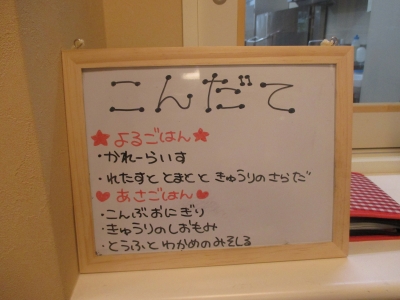 こんだて
★よるごはん★
・かれーらいす
・れたすと とまとと きゅうりのさらだ
♥あさごはん♥
・こんぶおにぎり
・きゅうりのしおもみ
・とうふと わかめのみそしる